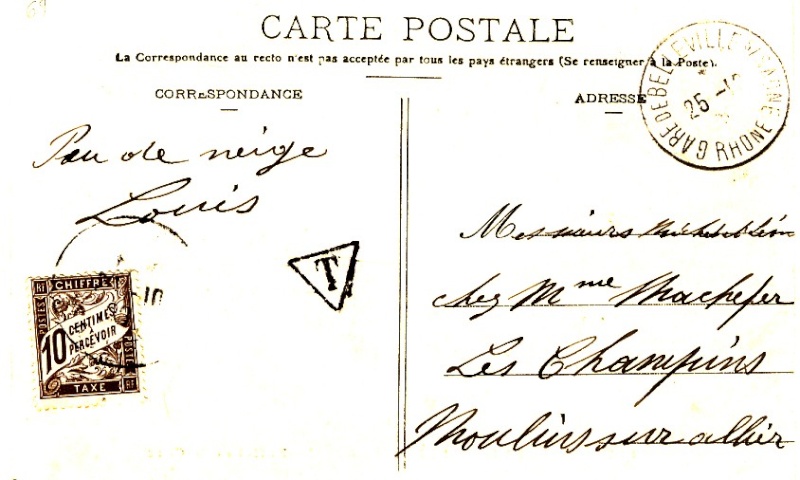 69
CARTE POSTALE
La Correspondance au recto n'est pas acceptée par tous les pays étrangers (Se renseigner à la Poste).
CORRESPONDANCE
ADRESSE
GARE DE BELLEVILLE S/ SAONE
25
RHONE
Peu de neige
Louis
T
RF CHIFFRE RF
POSTES
10 CENTIMES À PERCEVOIR
POSTES
TAXE RF
10
Messieurs
chez Mme Machefer
Les Champins
Moulins sur allier